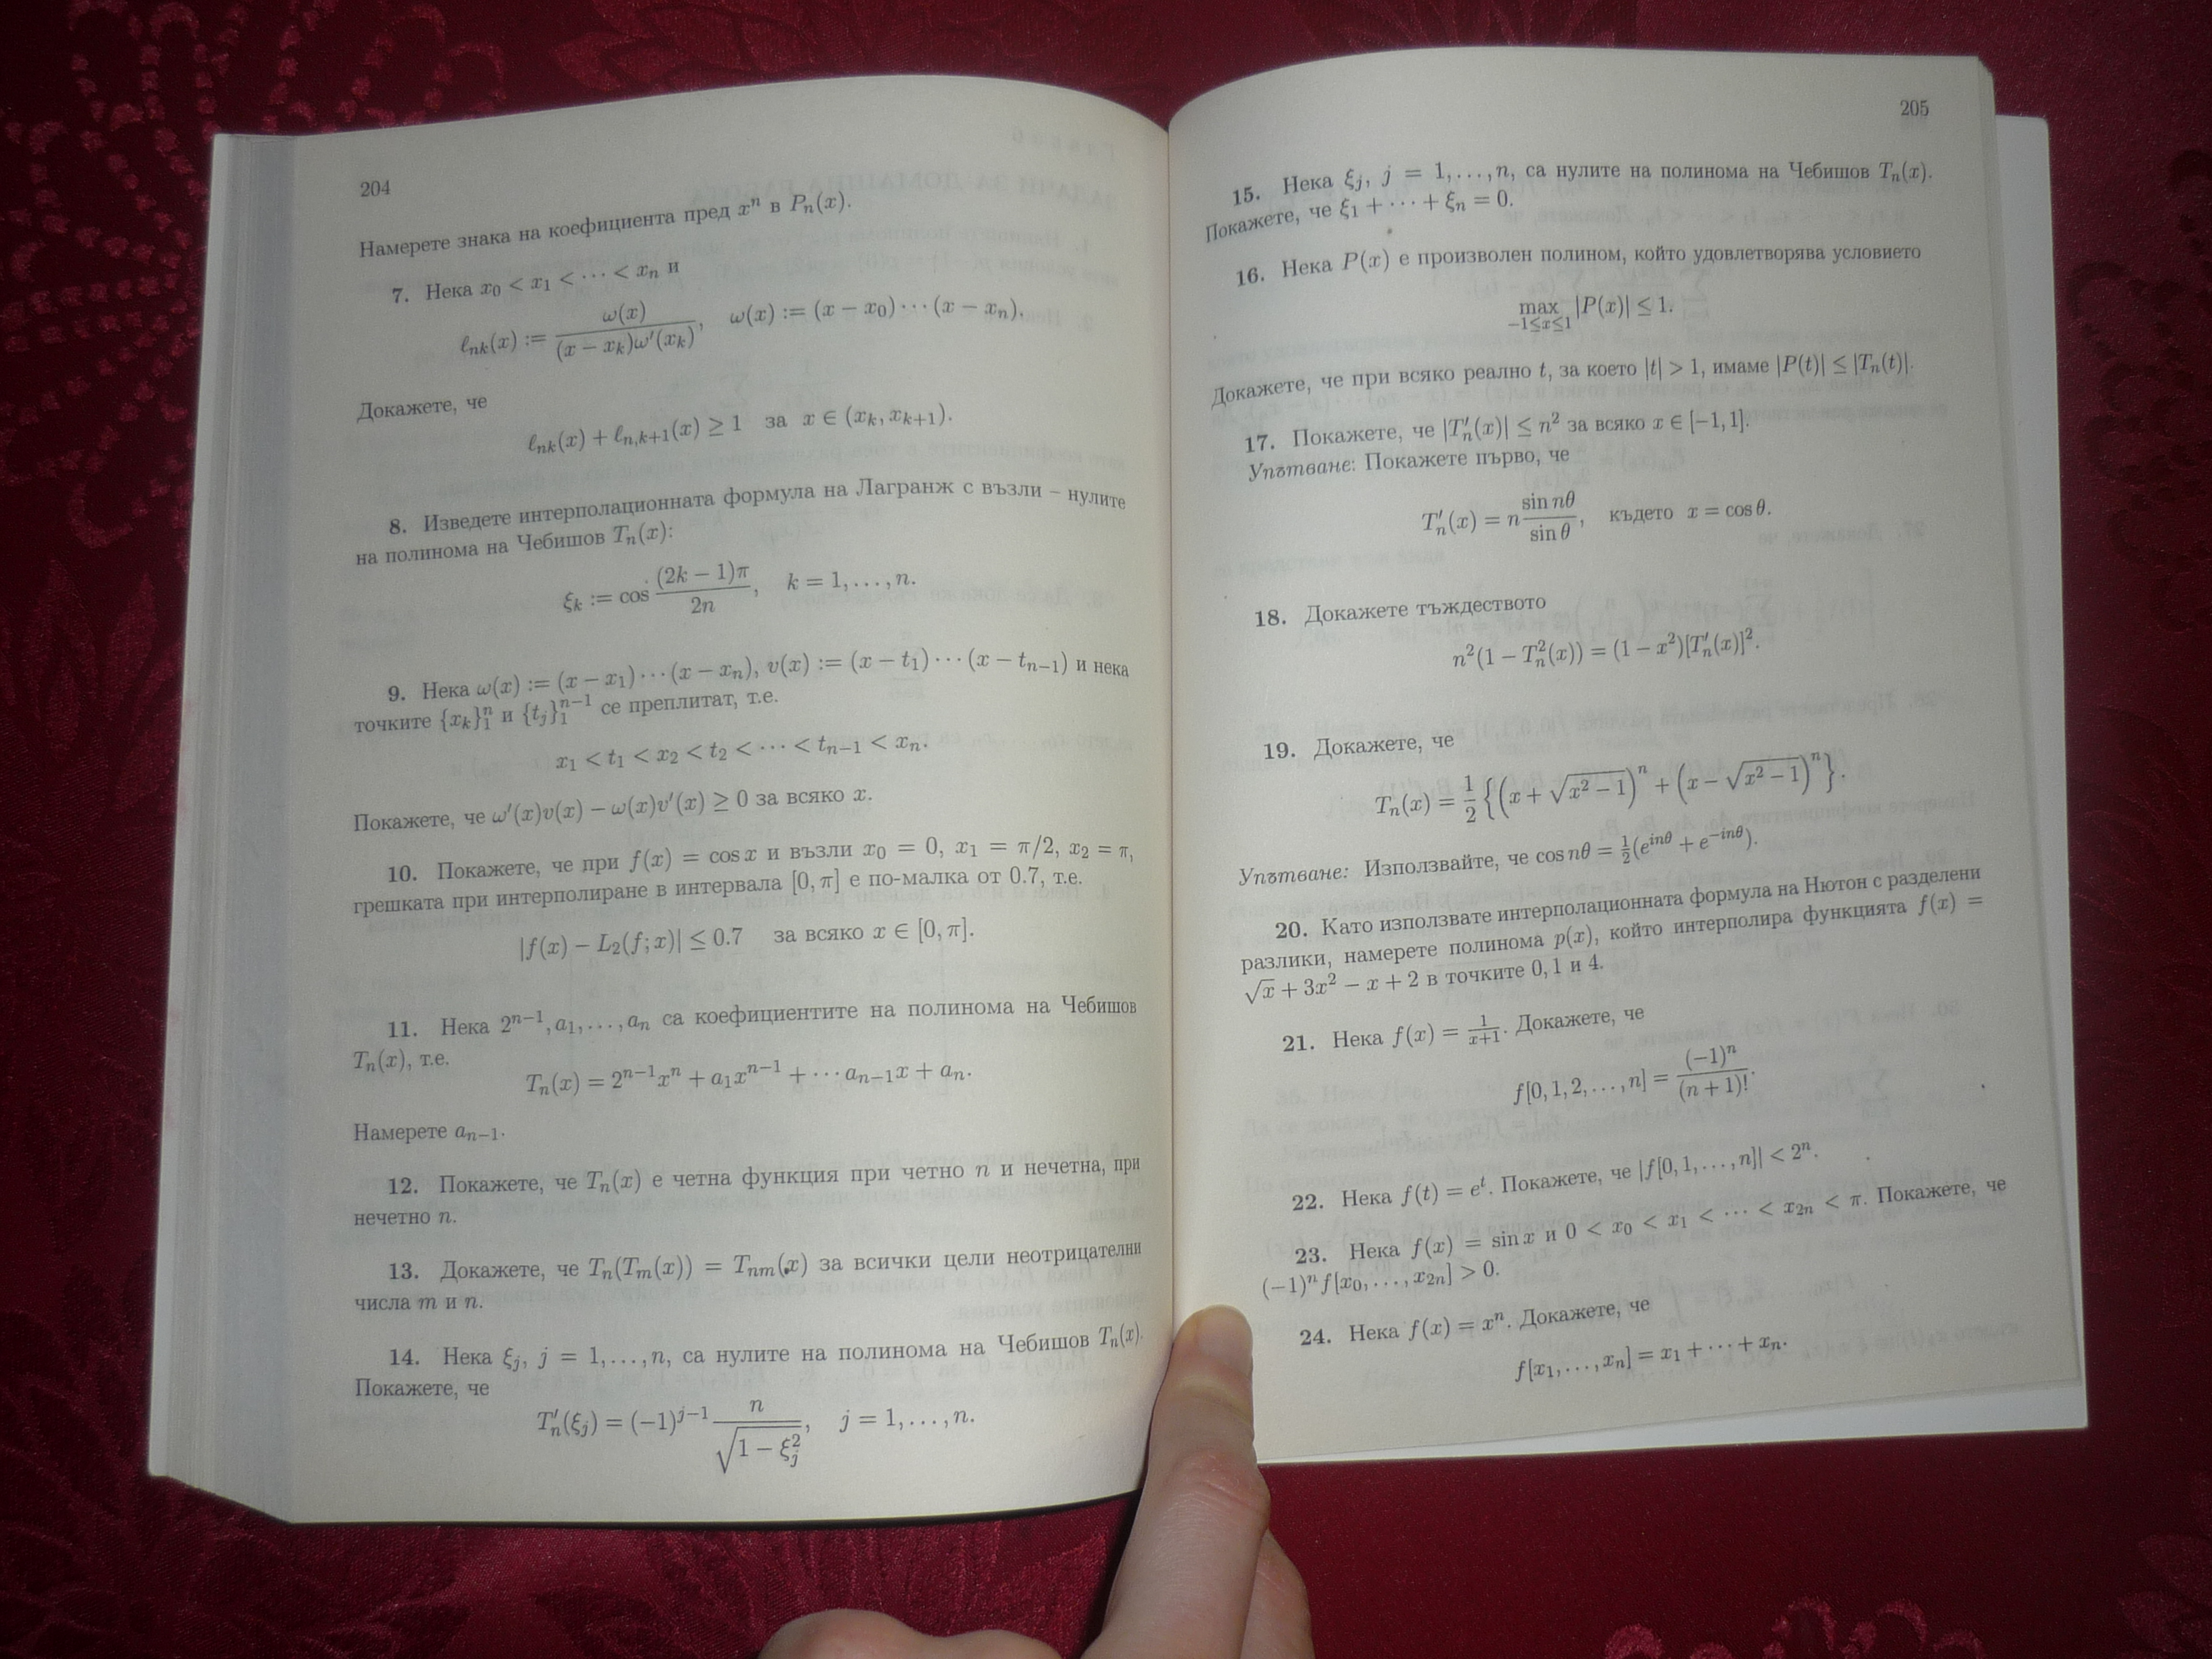 204
Намерете знака на коефициента пред xⁿ в Pₙ(x).
7. Нека x₀ < x₁ < ··· < xₙ и
ℓₙₖ(x) := ω(x) / ((x − xₖ)ω′(xₖ)), ω(x) := (x − x₀) ··· (x − xₙ).
Докажете, че
ℓₙₖ(x) + ℓₙ,ₖ₊₁(x) ≥ 1 за x ∈ (xₖ, xₖ₊₁).
8. Изведете интерполационната формула на Лагранж с възли – нулите
на полинома на Чебишов Tₙ(x):
ξₖ := cos (2k − 1)π / 2n, k = 1, ..., n.
9. Нека ω(x) := (x − x₁) ··· (x − xₙ), v(x) := (x − t₁) ··· (x − tₙ₋₁) и нека
точките {xₖ}₁ⁿ и {tⱼ}₁ⁿ⁻¹ се преплитат, т.е.
x₁ < t₁ < x₂ < t₂ < ··· < tₙ₋₁ < xₙ.
Покажете, че ω′(x)v(x) − ω(x)v′(x) ≥ 0 за всяко x.
10. Покажете, че при f(x) = cos x и възли x₀ = 0, x₁ = π/2, x₂ = π,
грешката при интерполиране в интервала [0, π] е по-малка от 0.7, т.е.
|f(x) − L₂(f; x)| ≤ 0.7 за всяко x ∈ [0, π].
11. Нека 2ⁿ⁻¹, a₁, ..., aₙ са коефициентите на полинома на Чебишов
Tₙ(x), т.е.
Tₙ(x) = 2ⁿ⁻¹xⁿ + a₁xⁿ⁻¹ + ··· aₙ₋₁x + aₙ.
Намерете aₙ₋₁.
12. Покажете, че Tₙ(x) е четна функция при четно n и нечетна, при
нечетно n.
13. Докажете, че Tₙ(Tₘ(x)) = Tₙₘ(x) за всички цели неотрицателни
числа m и n.
14. Нека ξⱼ, j = 1, ..., n, са нулите на полинома на Чебишов Tₙ(x).
Покажете, че
T′ₙ(ξⱼ) = (−1)ʲ⁻¹ n / √(1 − ξⱼ²), j = 1, ..., n.
205
15. Нека ξⱼ, j = 1, ..., n, са нулите на полинома на Чебишов Tₙ(x).
Покажете, че ξ₁ + ··· + ξₙ = 0.
16. Нека P(x) е произволен полином, който удовлетворява условието
max −1≤x≤1 |P(x)| ≤ 1.
Докажете, че при всяко реално t, за което |t| > 1, имаме |P(t)| ≤ |Tₙ(t)|.
17. Покажете, че |T′ₙ(x)| ≤ n² за всяко x ∈ [−1, 1].
Упътване: Покажете първо, че
T′ₙ(x) = n sin nθ / sin θ, където x = cos θ.
18. Докажете тъждеството
n²(1 − Tₙ²(x)) = (1 − x²)[T′ₙ(x)]².
19. Докажете, че
Tₙ(x) = 1/2 {(x + √(x² − 1))ⁿ + (x − √(x² − 1))ⁿ}.
Упътване: Използвайте, че cos nθ = ½(eⁱⁿᶿ + e⁻ⁱⁿᶿ).
20. Като използвате интерполационната формула на Нютон с разделени
разлики, намерете полинома p(x), който интерполира функцията f(x) =
√x + 3x² − x + 2 в точките 0, 1 и 4.
21. Нека f(x) = 1/(x+1). Докажете, че
f[0, 1, 2, ..., n] = (−1)ⁿ / (n + 1)!.
22. Нека f(t) = eᵗ. Покажете, че |f[0, 1, ..., n]| < 2ⁿ.
23. Нека f(x) = sin x и 0 < x₀ < x₁ < ··· < x₂ₙ < π. Покажете, че
(−1)ⁿf[x₀, ..., x₂ₙ] > 0.
24. Нека f(x) = xⁿ. Докажете, че
f[x₁, ..., xₙ] = x₁ + ··· + xₙ.